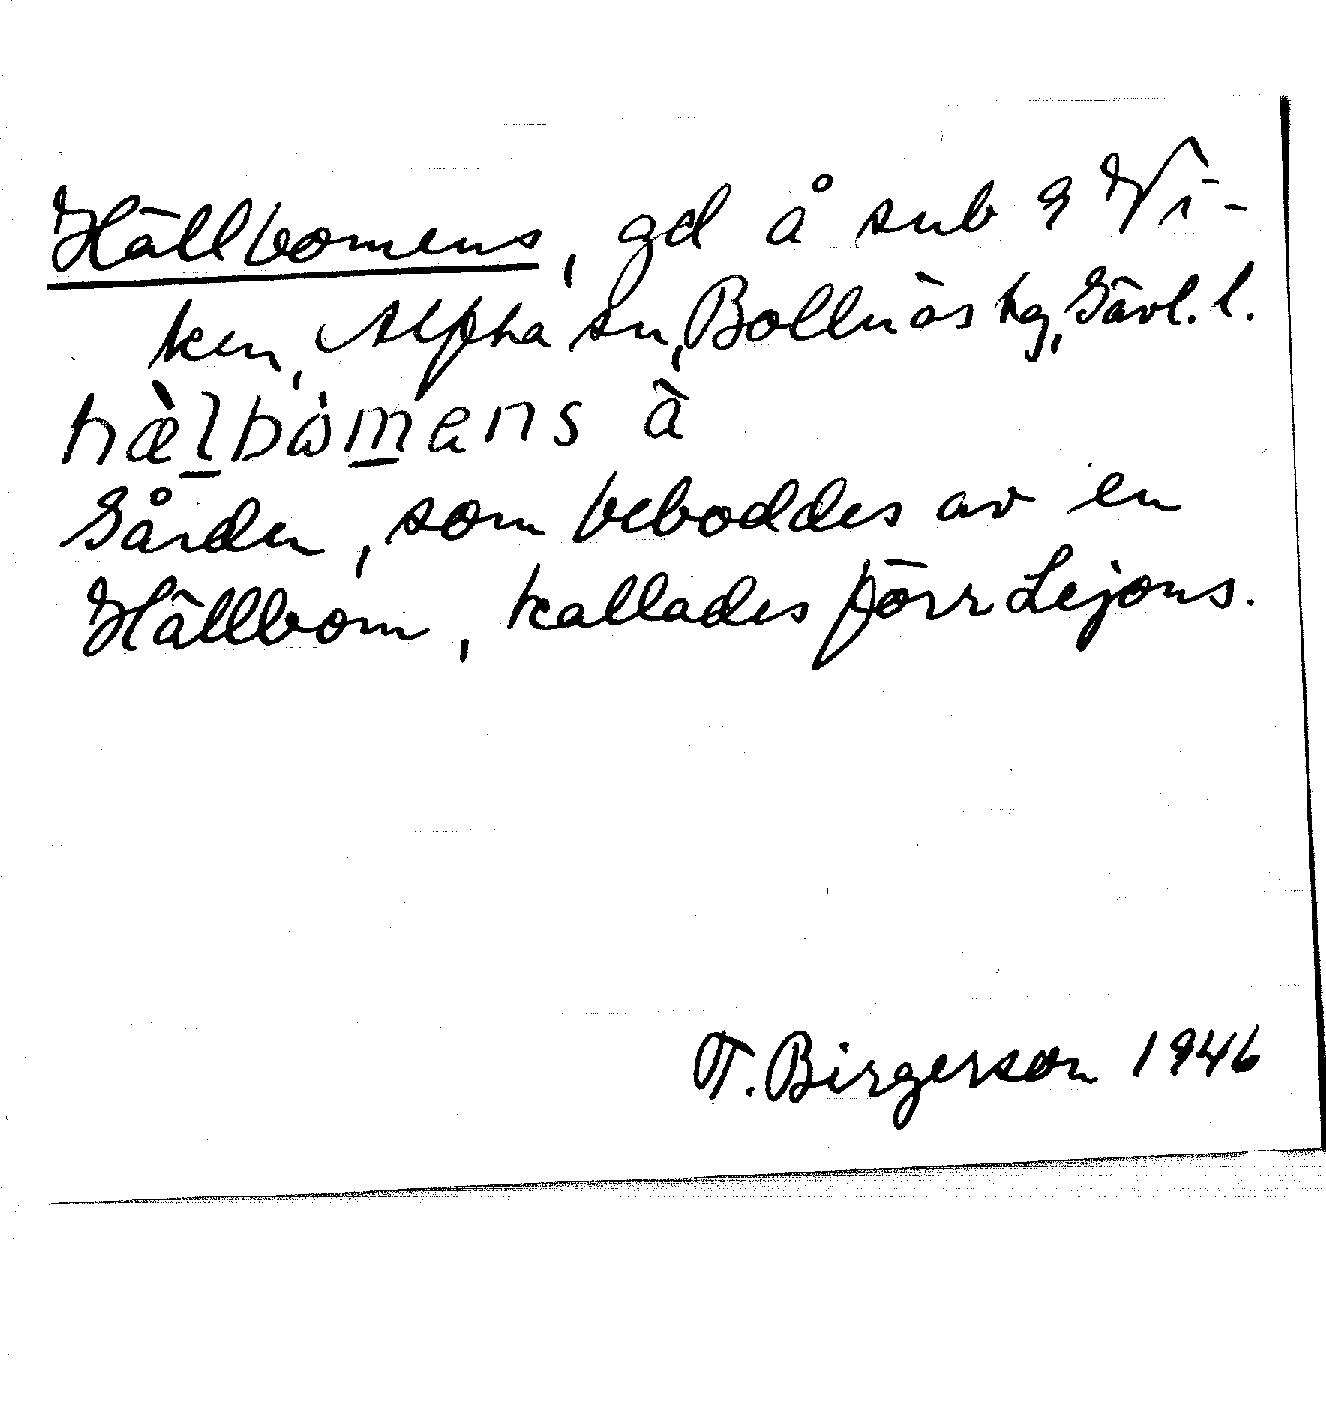 Hällbomens, gd å sub 9 Vi-
ken, Alpha sn, Bollnäs tg, Gävl. l.
hæ̀l̲bòm̲ens à
Gården, som beboddes av en
Hällbom, kallades förr Lejons.
T. Birgerson 1946